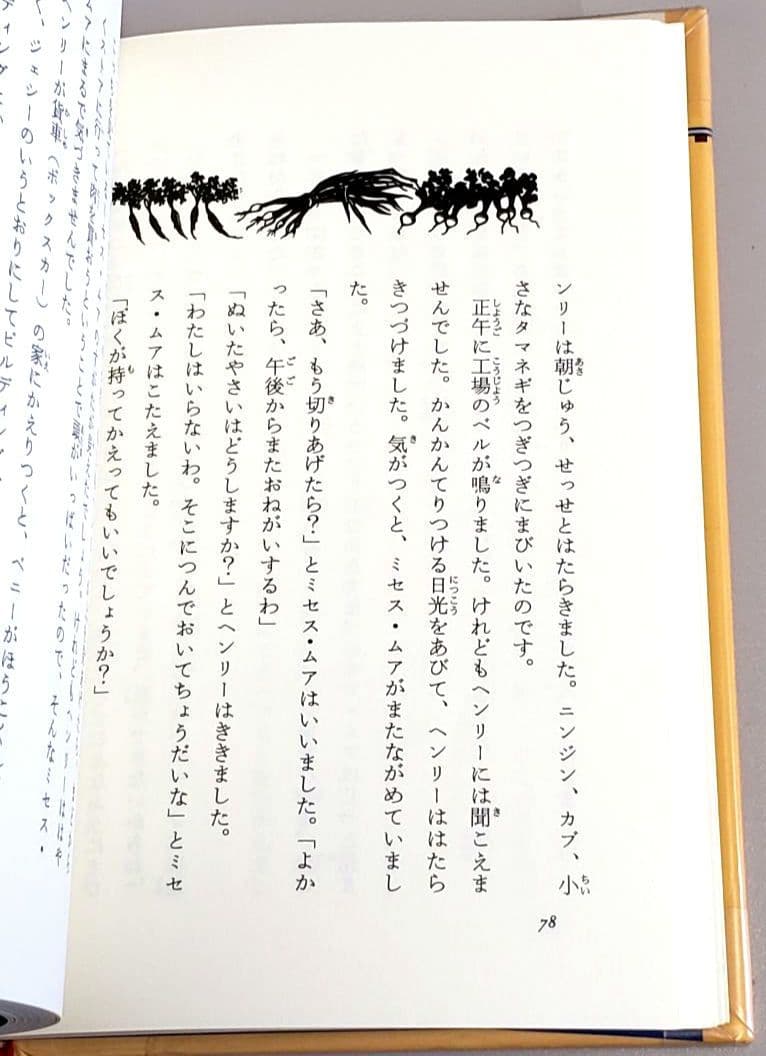 ンリーは朝じゅう、せっせとはたらきました。ニンジン、カブ、小
さなタマネギをつぎつぎにまびいたのです。
正午に工場のベルが鳴りました。けれどもヘンリーには聞こえま
せんでした。かんかんてりつける日光をあびて、ヘンリーははたら
きつづけました。気がつくと、ミセス・ムアがまたながめていまし
た。
「さあ、もう切りあげたら?」とミセス・ムアはいいました。「よか
ったら、午後からまたおねがいするわ」
「ぬいたやさいはどうしますか?」とヘンリーはききました。
「わたしはいらないわ。そこにつんでおいてちょうだいな」とミセ
ス・ムアはこたえました。
「ぼくが持ってかえってもいいでしょうか?」
78
まるで気づきませんでした。
ンリーが貨車(ボックスカー)の家にかえりつくと、ベニーがほう
、ジェシーのいうとおりにしてビルディング